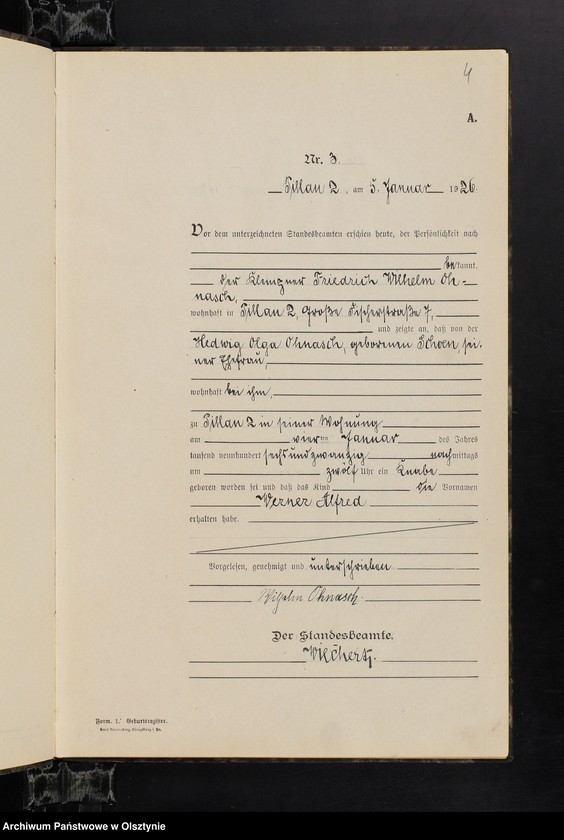 4
A.
Nr. 3.
Pillau 2, am 5. Januar 1926.
Vor dem unterzeichneten Standesbeamten erschien heute, der Persönlichkeit nach
bekannt,
der Klempner Friedrich Wilhelm Oh-
nasch,
wohnhaft in Pillau 2, Große Fischerstraße 7,
und zeigte an, daß von der
Hedwig Olga Ohnasch, geborenen Schoen, sei-
ner Ehefrau,
wohnhaft bei ihm,
zu Pillau 2 in seiner Wohnung
am vierten Januar des Jahres
tausend neunhundert sechsundzwanzig nachmittags
um zwölf Uhr ein Knabe
geboren worden sei und daß das Kind die Vornamen
Werner Alfred
erhalten habe.
Vorgelesen, genehmigt und unterschrieben
Wilhelm Ohnasch.
Der Standesbeamte.
Wiechert.
Form. 1. Geburtsregister.
Archiwum Państwowe w Olsztynie